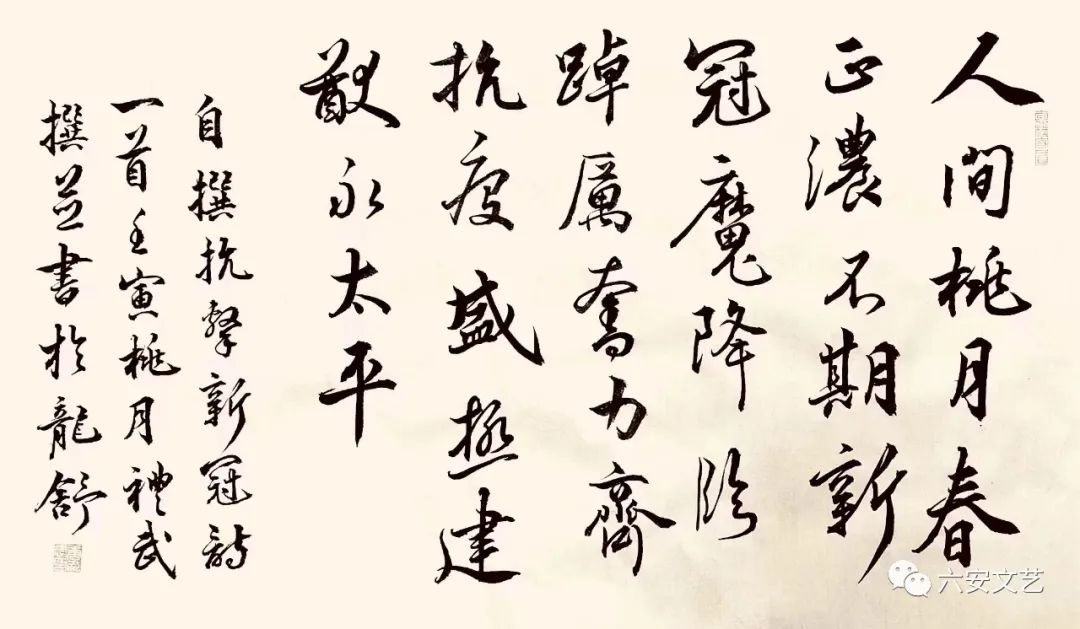 人間桃月春
正濃不期新
冠魔降臨
踔厲奮力齊
抗疫盛極建
猷永太平
自撰抗擊新冠詩
一首壬寅桃月禮武
撰並書於龍舒
六安文艺